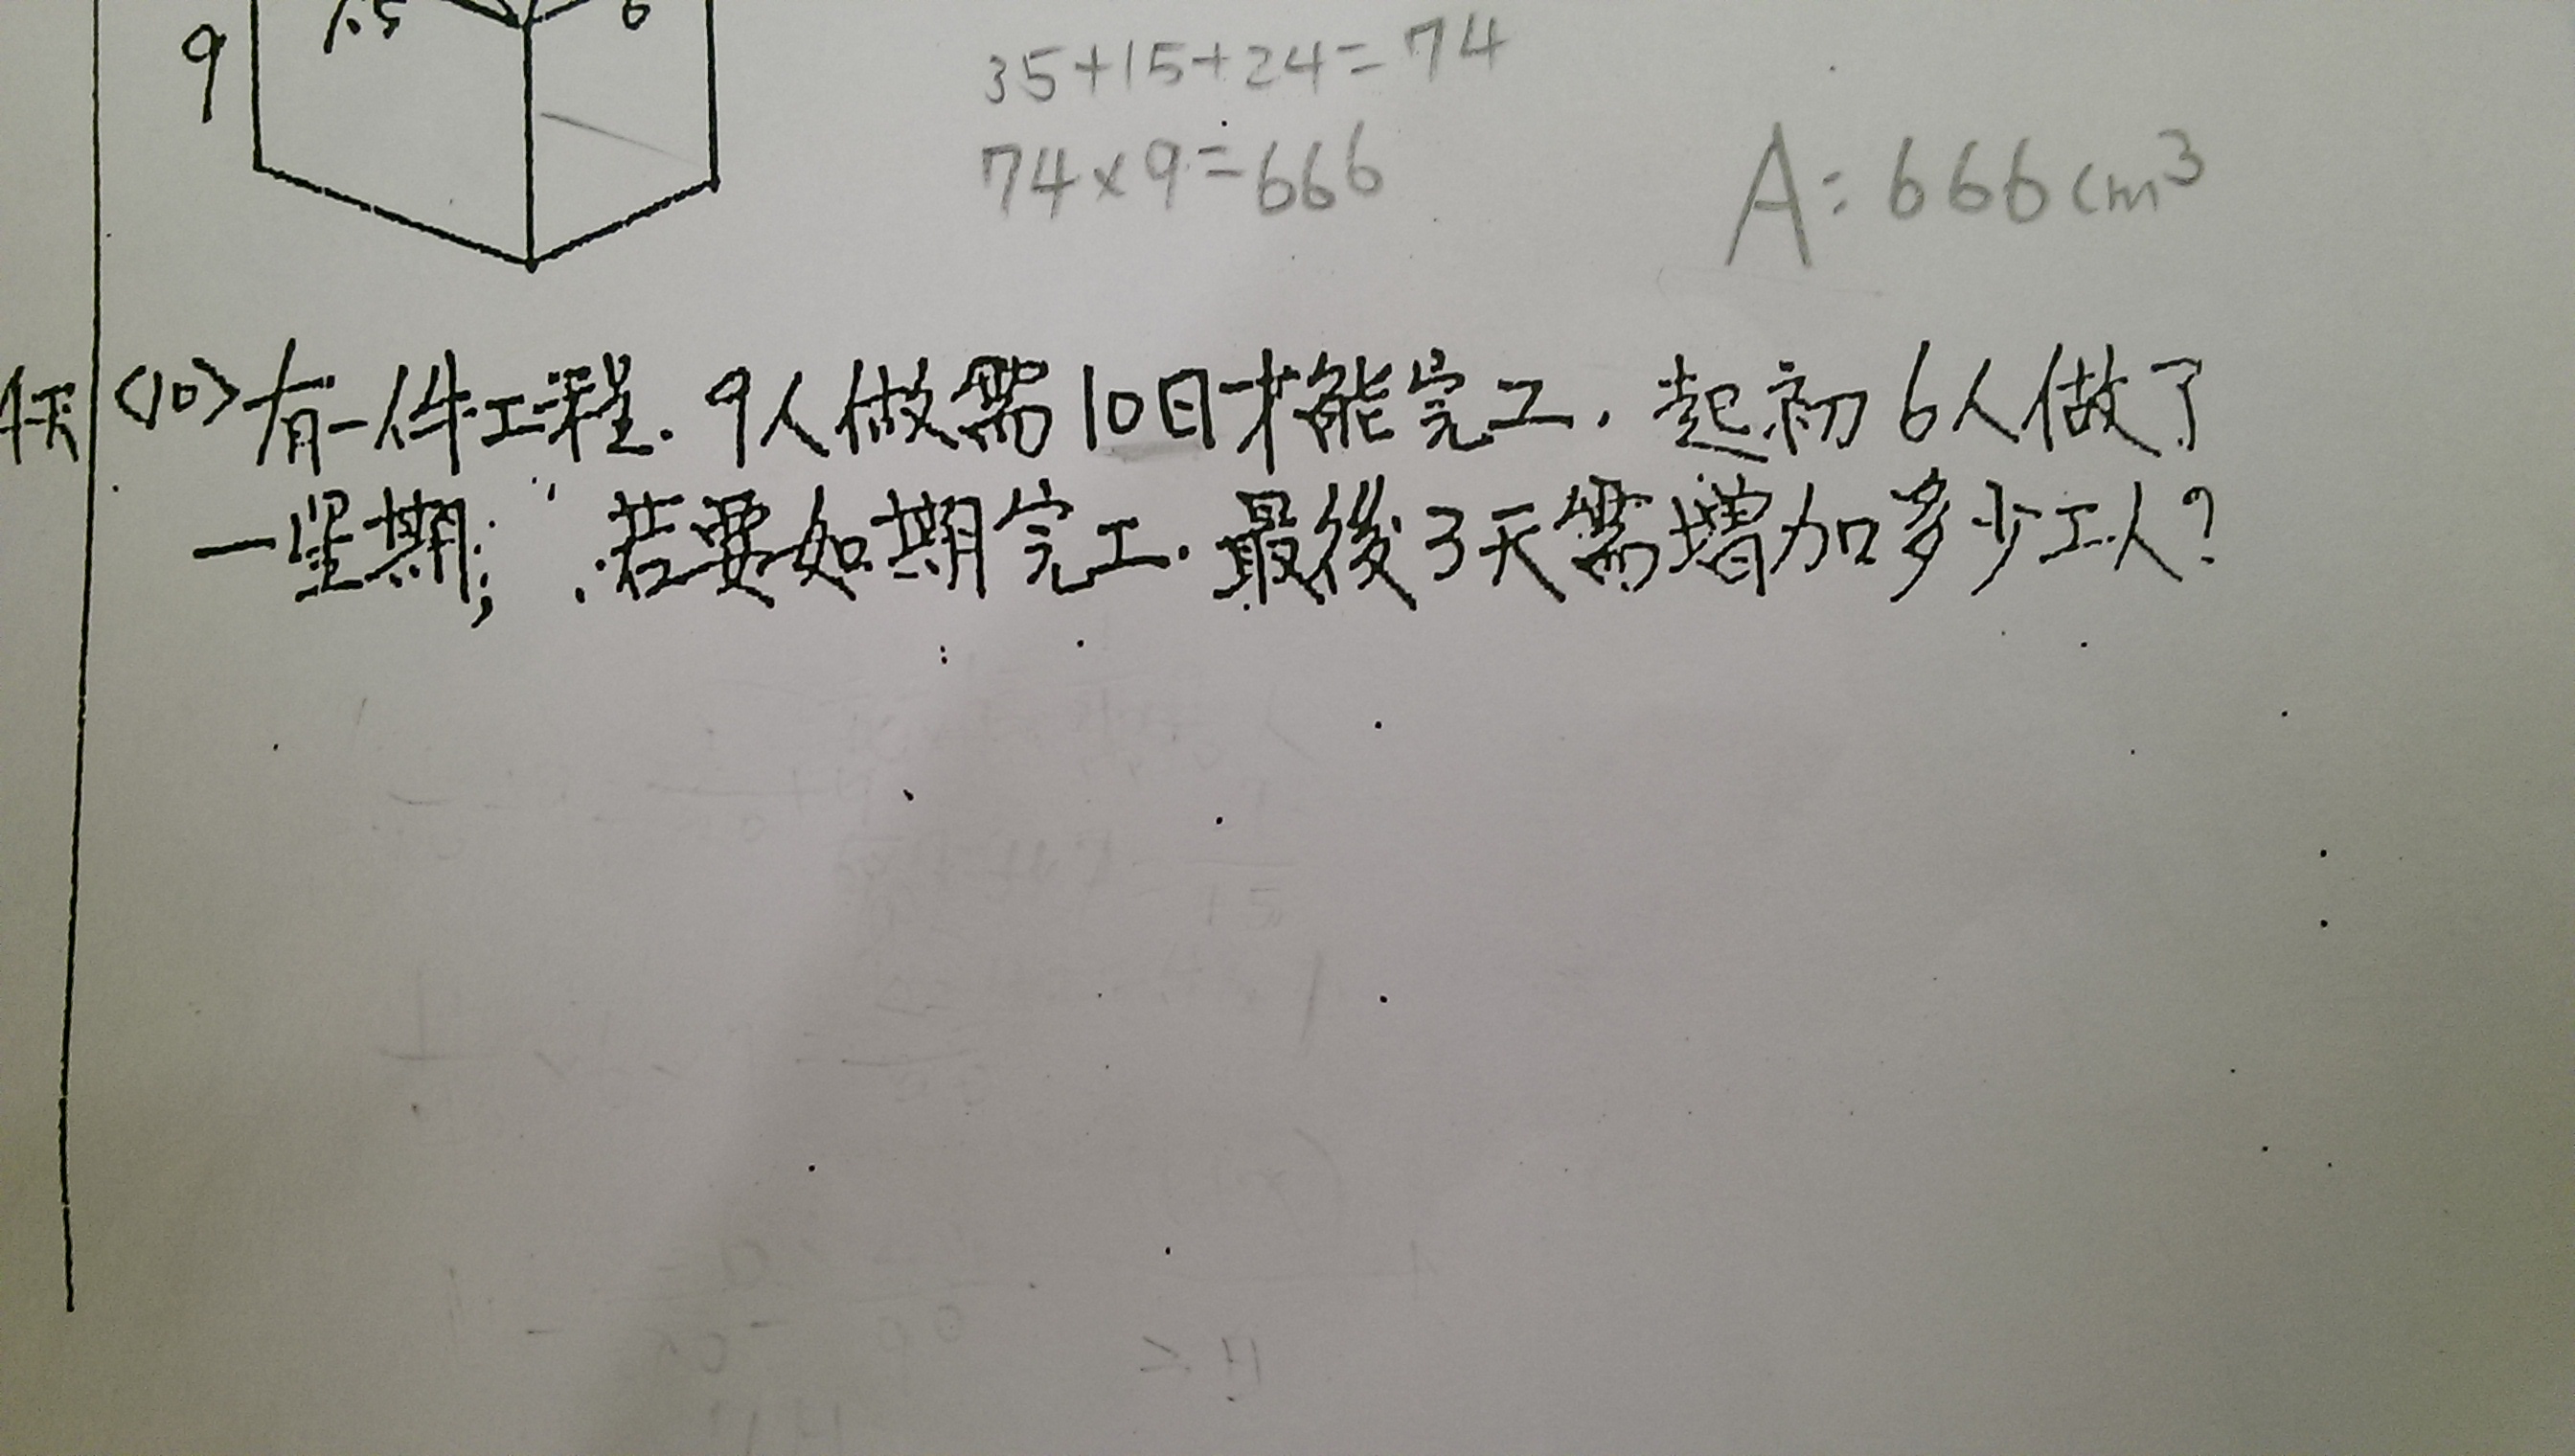 9
7.5
6
35+15+24=74
74×9=666
A:666cm³
天
<10>有一件工程.9人做需10日才能完工.起初6人做了
一星期;若要如期完工.最後3天需增加多少工人?